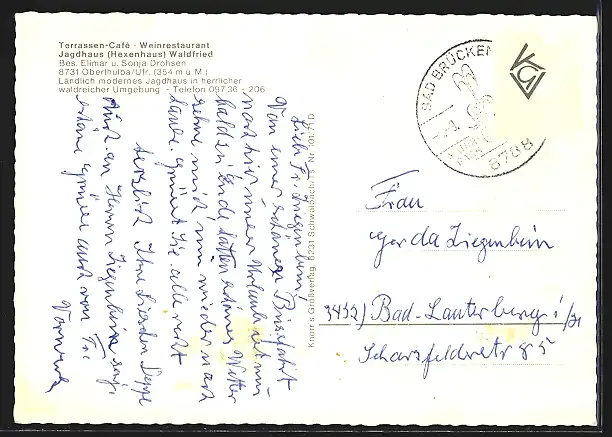 Terrassen-Café · Weinrestaurant
Jagdhaus (Hexenhaus) Waldfried
Bes. Elimar u. Sonja Drohsen
8731 Oberthulba/Ufr. (354 m ü.M.)
Ländlich modernes Jagdhaus in herrlicher
waldreicher Umgebung - Telefon 09736 - 206
Lieb. Fr. Ziegenbein,
Von einer schönen Busfahrt
nach hier unser Urlaub ist nun
bald zu Ende hatten schönes Wetter
sehne mich nun wieder nach
Hause grüßt Sie alle recht
herzlich Ihre
Auch an Herrn Ziegenbein
schöne Grüße auch von Fr.
Knorr's Großverlag, 8731 Schwalbach/Ts Nr. 101/71 D
BAD BRÜCKEN
8788
Frau
Gerda Ziegenbein
3422) Bad-Lauterberg i/Hz
Scharzfelderstr 85